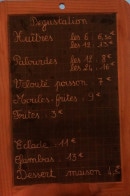 Degustation
Huîtres les 6 6,50€
les 12 : 13€
Palourdes les 12 8€
les 24 16€
Velouté poisson 7€
Moules-frites : 9€
Frites : 3€
Eclade : 11€
Gambas : 13€
Dessert maison 4,5€